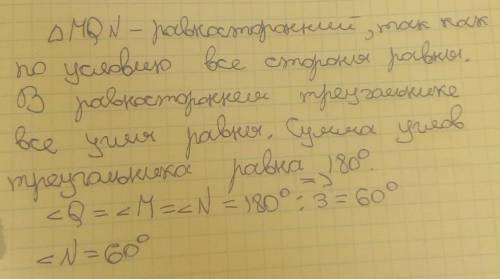 △MQN - равносторонний, так как
по условию все стороны равны.
В равностороннем треугольнике
все углы равны. Сумма углов
треугольника равна 180°. =>
∠Q = ∠M = ∠N = 180° : 3 = 60°
∠N = 60°